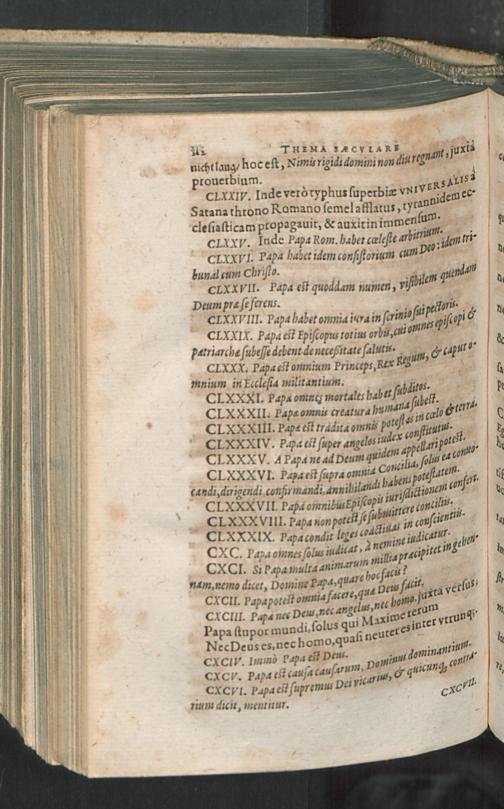 THEMA SÆCVLARE
nicht lang/ hoc est, Nimis rigidi domini non diu regnant, juxtà
prouerbium.
CLXXIV. Inde verò typhus superbiæ VNIVERSALIS à
Satana throno Romano semel afflatus, tyrannidem ec-
clesiasticam propagauit, & auxit in immensum.
CLXXV. Inde Papa Rom. habet cæleste arbitrium.
CLXXVI. Papa habet idem consistorium cum Deo: idem tri-
bunal cum Christo.
CLXXVII. Papa est quoddam numen, visibilem quendam
Deum præ se ferens.
CLXXVIII. Papa habet omnia iura in scrinio sui pectoris.
CLXXIX. Papa est Episcopus totius orbis, cui omnes episcopi &
patriarchæ subesse debent de necessitate salutis.
CLXXX. Papa est omnium Princeps, Rex Regum, & caput o-
mnium in Ecclesia militantium.
CLXXXI. Papa omnes mortales habet subditos.
CLXXXII. Papæ omnis creatura humana subest.
CLXXXIII. Papæ est tradita omnis potestas in cælo & terra.
CLXXXIV. Papa est super angelos iudex constitutus.
CLXXXV. A Papa ne ad Deum quidem appellari potest.
CLXXXVI. Papa est supra omnia Concilia, solus ea conuo-
candi, dirigendi, confirmandi, annihilandi habens potestatem.
CLXXXVII. Papa omnibus Episcopis iurisdictionem confert.
CLXXXVIII. Papa non potest se submittere conciliis.
CLXXXIX. Papa condit leges coactiuas in conscientiis.
CXC. Papa omnes solus iudicat, à nemine iudicatur.
CXCI. Si Papa multa animarum millia præcipitet in gehen-
nam, nemo dicet, Domine Papa, quare hoc facis?
CXCII. Papa potest omnia facere, quæ Deus facit.
CXCIII. Papa nec Deus, nec angelus, nec homo. juxta versus:
Papa stupor mundi, solus qui Maxime rerum
Nec Deus es, nec homo, quasi neuter es inter vtrunq;.
CXCIV. Immò Papa est Deus.
CXCV. Papa est causa causarum, Dominus dominantium.
CXCVI. Papa est supremus Dei vicarius, & quicunq; contra-
rium dicit, mentitur.
CXCVII.